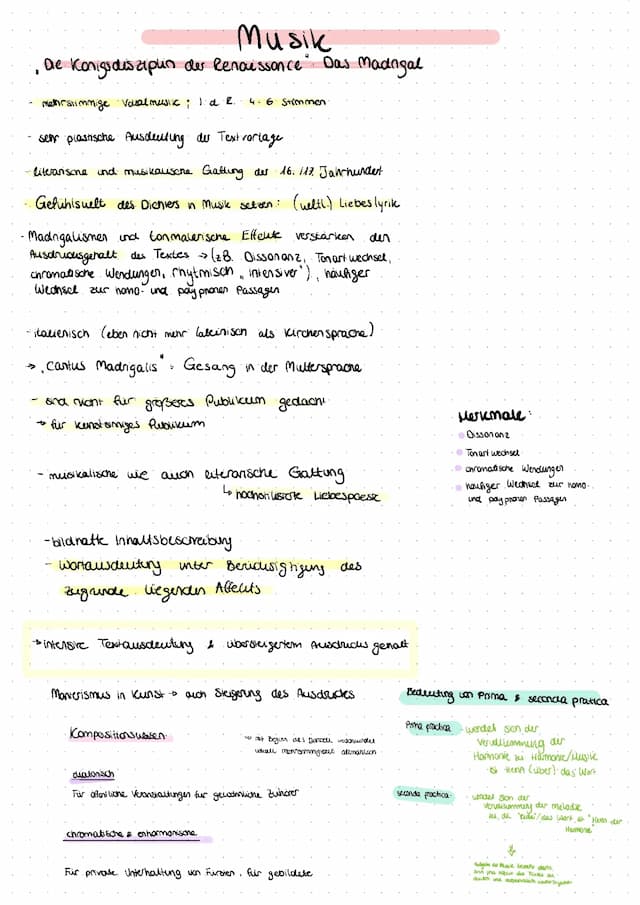 Musik
"Die Königsdisziplin der Renaissance" Das Madrigal
- mehrstimmige Vokalmusik; i.d.R. 4-6 Stimmen
- sehr plastische Ausdeutung der Textvorlage
- literarische und musikalische Gattung der 16./17. Jahrhundert
- Gefühlswelt des Dichters in Musik setzen: (weltl.) Liebeslyrik
- Madrigalismen und tonmalerische Effekte verstärken den
Ausdrucksgehalt des Textes → (z.B. Dissonanz, Tonartwechsel,
chromatische Wendungen, rhytmisch "intensiver"), häufiger
Wechsel zur homo- und polyphonen Passagen
- italienisch (eben nicht mehr lateinisch als Kirchensprache)
→ "Cantus Madrigalis" = Gesang in der Muttersprache
- sind nicht für größeres Publikum gedacht
→ für kunstsinniges Publikum
Merkmale:
Dissonanz
Tonartwechsel
chromatische Wendungen
häufiger Wechsel zur homo-
und polyphonen Passagen
- musikalische wie auch literarische Gattung
↳ hochstilisierte Liebespoesie
- bildhafte Inhaltsbeschreibung
- Wortausdeutung unter Berücksichtigung des
zugrunde liegenden Affekts
→ intensive Textausdeutung & übersteigertem Ausdrucksgehalt
Manierismus in Kunst → auch Steigerung des Ausdruckes
Kompositionsweisen:
→ mit Beginn des Barock verschwindet
vokale Mehrstimmigkeit allmählich
diatonisch
Für öffentliche Veranstaltungen für gewöhnliche Zuhörer
chromatische & enharmonische
Für private Unterhaltung von Fürsten, für gebildete
Bedeutung von Prima & seconda pratica
Prima practica: wendet sich der
Vervollkommnung der
Harmonie zu Harmonie/Musik
ist Herrin (über) das Wort
seconda practica: wendet sich der
Vervollkommnung der Melodie
zu, die "Rede"/das Wort ist "Herrin der
Harmonie"